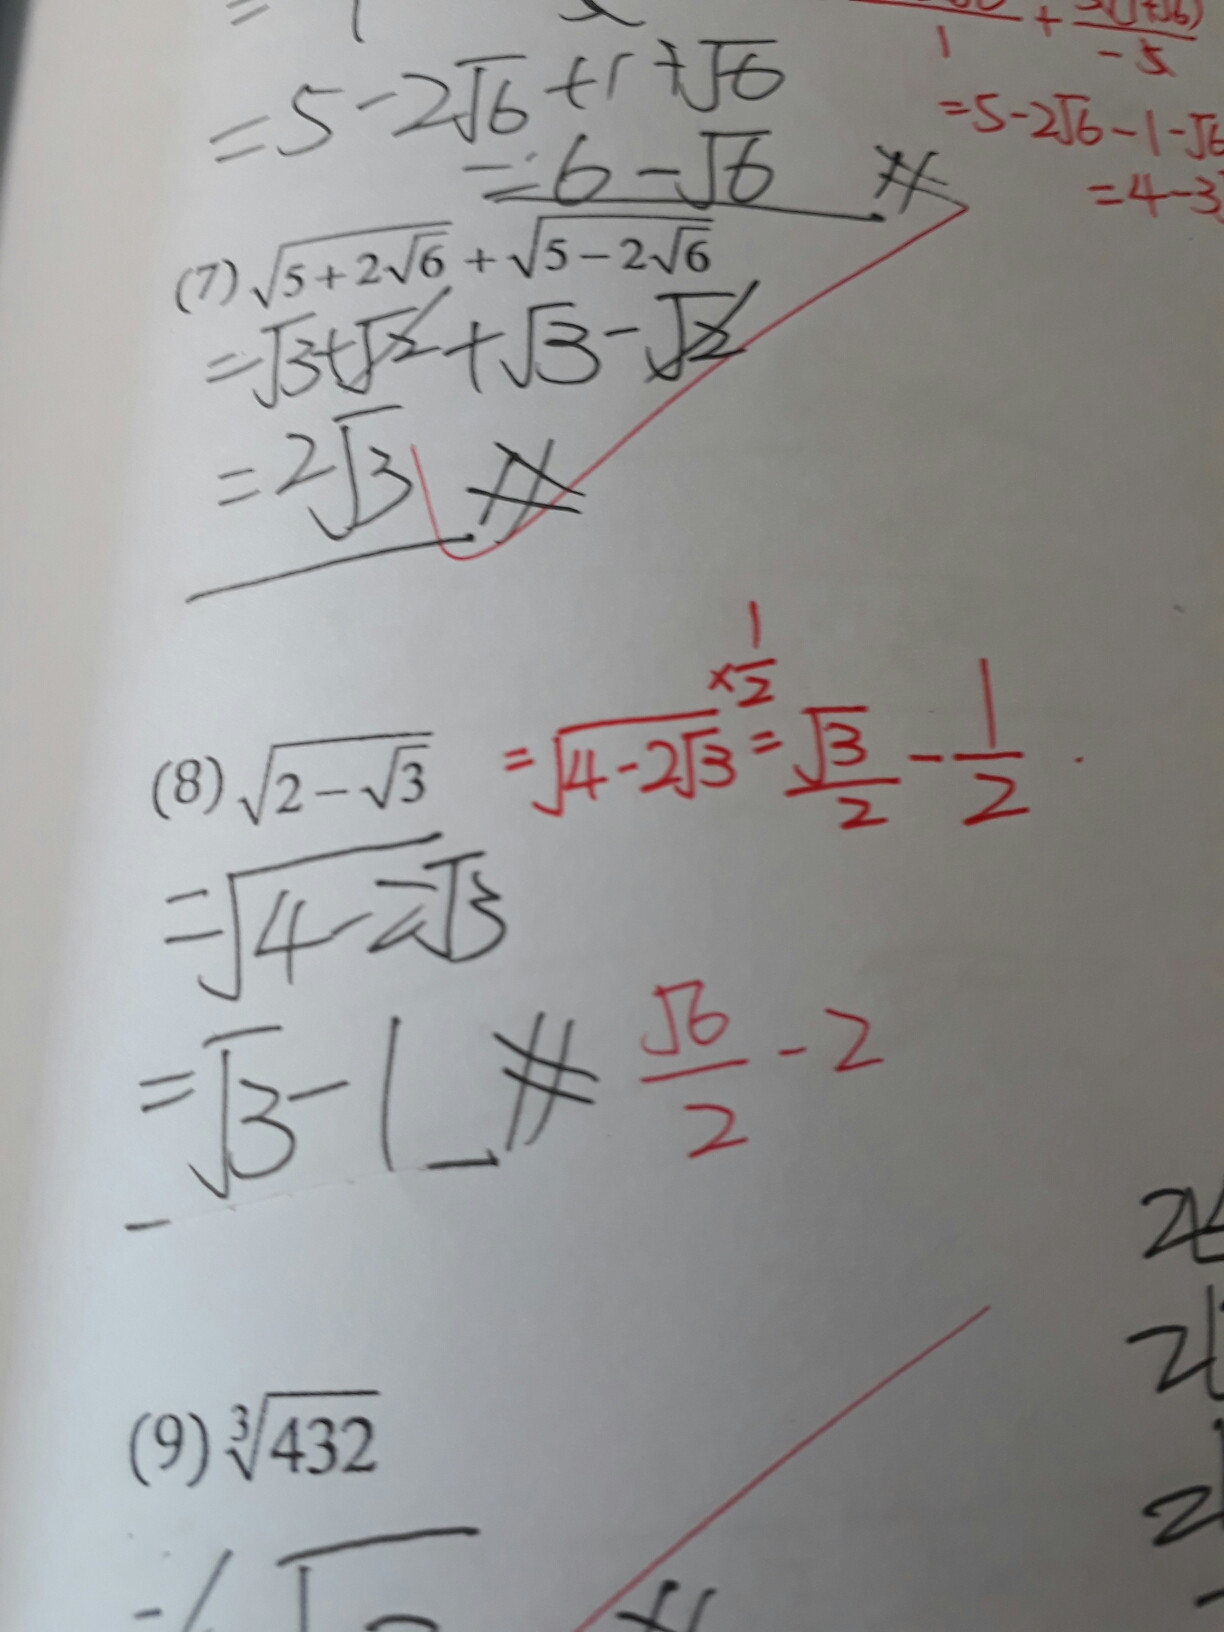 = 5 - 2√6 + 1 + √6
= 6 - √6
1 + -5
= 5 - 2√6 - 1 - √6
= 4 - 3
(7) √(5 + 2√6) + √(5 - 2√6)
= √3 + √2 + √3 - √2
= 2√3
(8) √(2 - √3) = √(4 - 2√3) × 1/2 = √3/2 - 1/2
= √(4 - 2√3)
= √3 - 1 √6/2 - 2
(9) ∛432